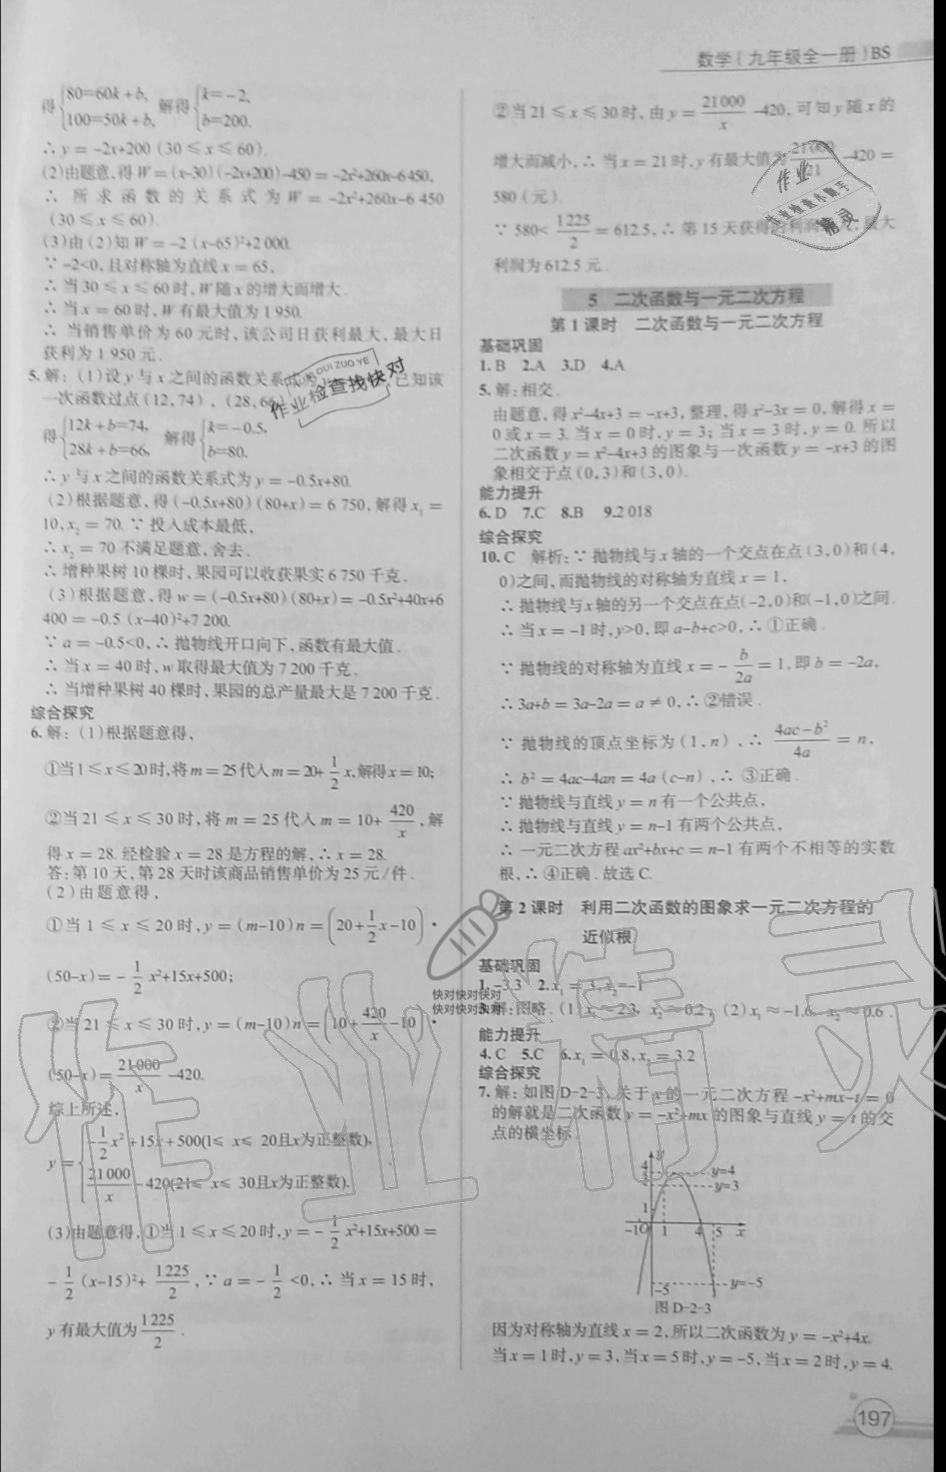 数学(九年级全一册)BS
得{80=60k+b, 100=50k+b, 解得{k=-2, b=200.
∴y=-2x+200(30≤x≤60).
(2)由题意,得W=(x-30)(-2x+200)-450=-2x²+260x-6450,
∴所求函数的关系式为W=-2x²+260x-6 450
(30≤x≤60).
(3)由(2)知W=-2(x-65)²+2 000.
∵-2<0,且对称轴为直线x=65,
∴当30≤x≤60时,W随x的增大而增大.
∴当x=60时,W有最大值为1 950.
∴当销售单价为60元时,该公司日获利最大,最大日
获利为1 950元.
5.解:(1)设y与x之间的函数关系 已知该
一次函数过点(12,74),(28,66)
得{12k+b=74, 28k+b=66, 解得{k=-0.5, b=80.
∴y与x之间的函数关系式为y=-0.5x+80.
(2)根据题意,得(-0.5x+80)(80+x)=6 750,解得x₁=
10,x₂=70.∵投入成本最低,
∴x₂=70不满足题意,舍去.
∴增种果树10棵时,果园可以收获果实6 750千克.
(3)根据题意,得w=(-0.5x+80)(80+x)=-0.5x²+40x+6
400=-0.5(x-40)²+7 200.
∵a=-0.5<0,∴抛物线开口向下,函数有最大值.
∴当x=40时,w取得最大值为7 200千克.
∴当增种果树40棵时,果园的总产量最大是7 200千克.
综合探究
6.解:(1)根据题意得,
①当1≤x≤20时,将m=25代入m=20+1/2x,解得x=10;
②当21≤x≤30时,将m=25代入m=10+420/x,解
得x=28.经检验x=28是方程的解,∴x=28.
答:第10天,第28天时该商品销售单价为25元/件.
(2)由题意得,
①当1≤x≤20时,y=(m-10)n=(20+1/2x-10)·
(50-x)=-1/2x²+15x+500;
②当21≤x≤30时,y=(m-10)n=(10+420/x-10)·
(50-x)=21000/x-420.
综上所述,
y={-1/2x²+15x+500(1≤x≤20且x为正整数), 21000/x-420(21≤x≤30且x为正整数).
(3)由题意得,①当1≤x≤20时,y=-1/2x²+15x+500=
-1/2(x-15)²+1225/2,∵a=-1/2<0,∴当x=15时,
y有最大值为1225/2.
②当21≤x≤30时,由y=21000/x-420,可知y随x的
增大而减小,∴当x=21时,y有最大值为21000/21-420=
580(元).
∵580<1225/2=612.5,∴第15天获得的利润最大,最大
利润为612.5元.
5 二次函数与一元二次方程
第1课时 二次函数与一元二次方程
基础巩固
1.B 2.A 3.D 4.A
5.解:相交.
由题意,得x²-4x+3=-x+3,整理,得x²-3x=0,解得x=
0或x=3.当x=0时,y=3;当x=3时,y=0.所以
二次函数y=x²-4x+3的图象与一次函数y=-x+3的图
象相交于点(0,3)和(3,0).
能力提升
6.D 7.C 8.B 9.2 018
综合探究
10.C 解析:∵抛物线与x轴的一个交点在点(3,0)和(4,
0)之间,而抛物线的对称轴为直线x=1,
∴抛物线与x轴的另一个交点在点(-2,0)和(-1,0)之间.
∴当x=-1时,y>0,即a-b+c>0,∴①正确.
∵抛物线的对称轴为直线x=-b/2a=1,即b=-2a,
∴3a+b=3a-2a=a≠0,∴②错误.
∵抛物线的顶点坐标为(1,n),∴(4ac-b²)/4a=n,
∴b²=4ac-4an=4a(c-n),∴③正确.
∵抛物线与直线y=n有一个公共点,
∴抛物线与直线y=n-1有两个公共点,
∴一元二次方程ax²+bx+c=n-1有两个不相等的实数
根,∴④正确.故选C.
第2课时 利用二次函数的图象求一元二次方程的
近似根
基础巩固
1.-3.3 2.x₁=3,x₂=-1
3.解:图略.(1)x₁≈2.3,x₂≈0.2;(2)x₁≈-1.6,x₂≈0.6.
能力提升
4.C 5.C 6.x₁=0.8,x₂=3.2
综合探究
7.解:如图D-2-3,关于x的一元二次方程-x²+mx-t=0
的解就是二次函数y=-x²+mx的图象与直线y=t的交
点的横坐标.
y
4
3
1
-1 O 1 4 5 x
-5
y=4
y=3
y=-5
图D-2-3
因为对称轴为直线x=2,所以二次函数为y=-x²+4x.
当x=1时,y=3,当x=5时,y=-5,当x=2时,y=4.
197
作业
作业检查小助手
精灵
作业检查找快对
快对快对快对
快对快对快对
作业精灵